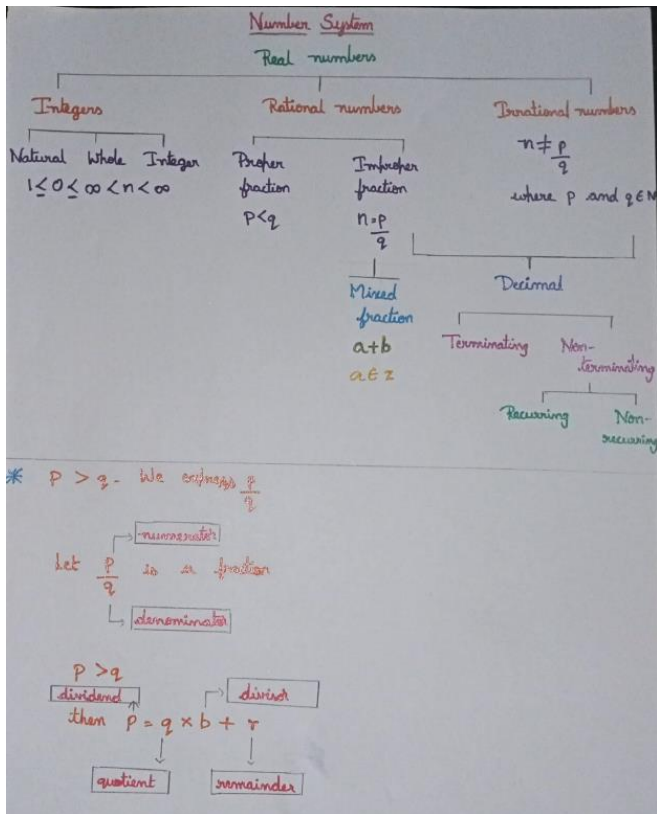 Number System
Real numbers
Integers Rational numbers Irrational numbers
Natural Whole Integer
1 ≤ 0 ≤ ∞ < n < ∞
Proper fraction
P < q
Improper fraction
n = p/q
Mixed fraction
a + b
a ∈ z
n ≠ p/q
where p and q ∈ N
Decimal
Terminating Non-terminating
Recurring Non-recurring
* P > q - We express p/q
numerator
Let p/q is a fraction
denominator
P > q
dividend divisor
then P = q × b + r
quotient remainder